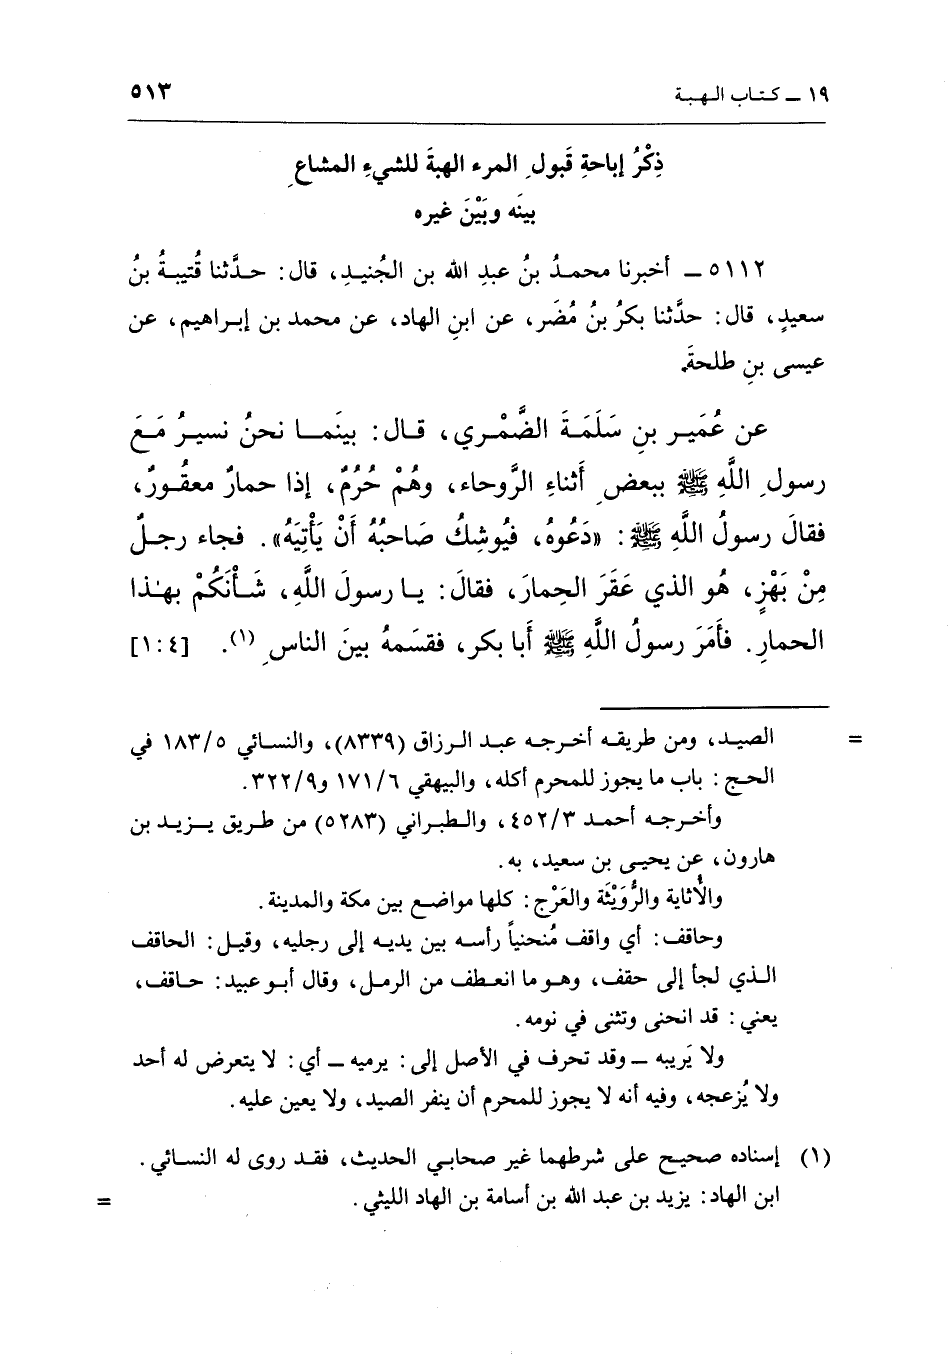 ١٩ ــ كتاب الهبة ٥١٣
ذِكْرُ إباحةِ قَبولِ المرء الهبةَ للشيءِ المشاعِ
بينَه وبَيْنَ غيره
٥١١٢ ــ أخبرنا محمدُ بنُ عبدِ الله بن الجُنيدِ، قال: حدَّثنا قُتيبةُ بنُ
سعيدٍ، قال: حدَّثنا بكرُ بنُ مُضَر، عن ابنِ الهاد، عن محمد بن إبراهيم، عن
عيسى بنِ طلحةَ.
عن عُمَير بنِ سَلَمَةَ الضَّمْري، قال: بينَما نحنُ نسيرُ مَعَ
رسولِ اللَّهِ ﷺ ببعضِ أثناءِ الرَّوحاء، وهُمْ حُرُمٌ، إذا حمارٌ معقُورٌ،
فقالَ رسولُ اللَّهِ ﷺ: «دَعُوهُ، فَيُوشِكُ صَاحبُهُ أَنْ يَأْتِيَهُ». فجاء رجلٌ
مِنْ بَهْزٍ، هُو الذي عَقَرَ الحِمارَ، فقالَ: يا رسولَ اللَّهِ، شَأْنَكُمْ بهٰذا
الحمارِ. فأَمَرَ رسولُ اللَّهِ ﷺ أبا بكر، فقسَمهُ بينَ الناسِ (١). [٤:١]
= الصيد، ومن طريقه أخرجه عبد الرزاق (٨٣٣٩)، والنسائي ١٨٣/٥ في
الحج: باب ما يجوز للمحرم أكله، والبيهقي ١٧١/٦ و٣٢٢/٩.
وأخرجه أحمد ٤٥٢/٣، والطبراني (٥٢٨٣) من طريق يزيد بن
هارون، عن يحيى بن سعيد، به.
والأُثاية والرُّوَيْثَة والعَرْج: كلها مواضع بين مكة والمدينة.
وحاقف: أي واقف مُنحنياً رأسه بين يديه إلى رجليه، وقيل: الحاقف
الذي لجأ إلى حقف، وهو ما انعطف من الرمل، وقال أبو عبيد: حاقف،
يعني: قد انحنى وتثنى في نومه.
ولا يَريبه ــ وقد تحرف في الأصل إلى: يرميه ــ أي: لا يتعرض له أحد
ولا يُزعجه، وفيه أنه لا يجوز للمحرم أن ينفر الصيد، ولا يعين عليه.
(١) إسناده صحيح على شرطهما غير صحابي الحديث، فقد روى له النسائي.
ابن الهاد: يزيد بن عبد الله بن أسامة بن الهاد الليثي. =